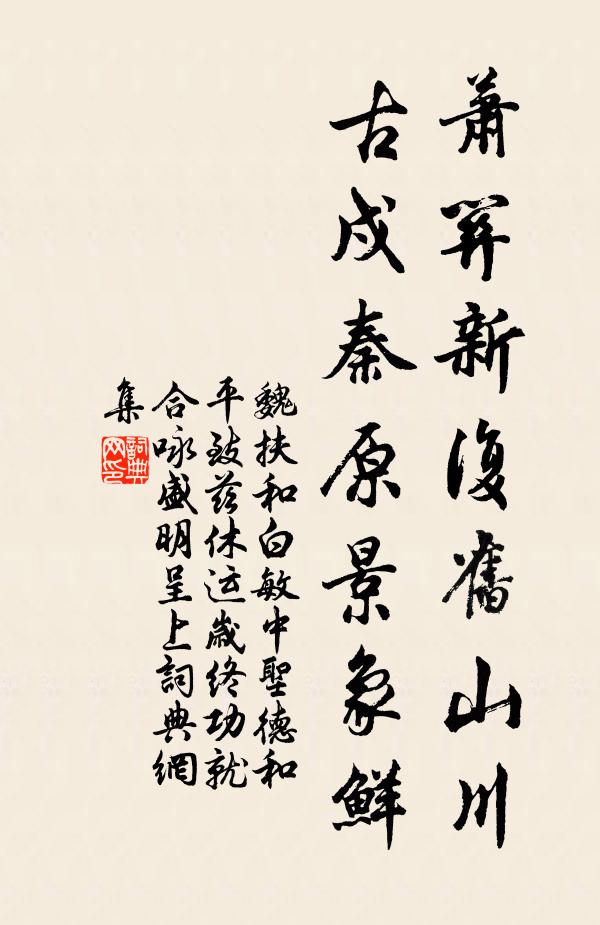 蕭關新復舊山川
古戍秦原景象鮮
魏扶和白敏中聖德和
平致茲休运歲终功就
合咏盛明呈上詞典網
集
詞典
网印